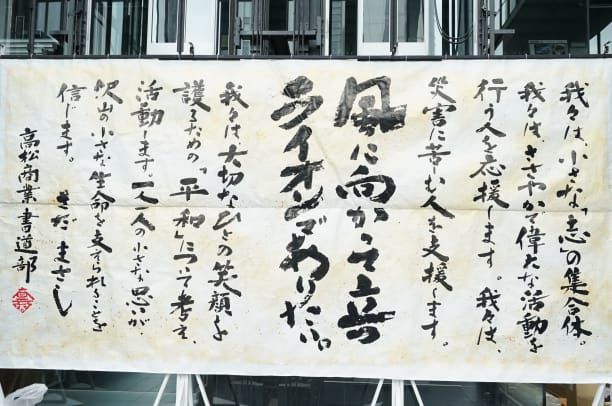 我々は、小さな「志」の集合体。
我々は、ささやかで偉大な活動を
行う人を応援します。我々は、
災害に苦しむ人を支援します。
風に向かって立つ
ライオンでありたい。
我々は大切なひとの笑顔を
護るための「平和」について考え、
活動します。一人一人の小さな思いが
沢山の小さな生命を支えられることを
信じます。
さだ まさし
高松商業書道部